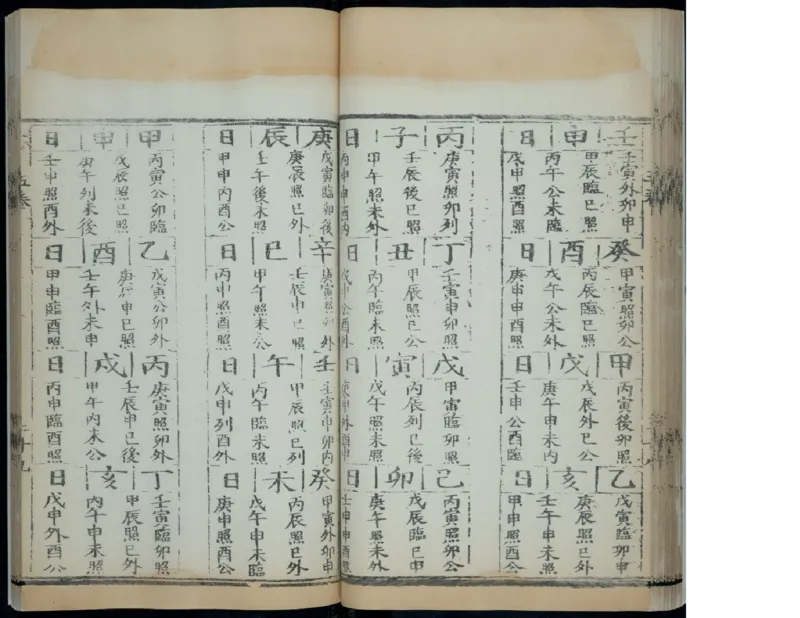 壬申日
壬寅外卯申
甲辰臨巳照
丙午公未臨
戊申照酉外
癸酉日
甲寅照卯公
丙辰臨巳照
戊午公未外
庚申申酉照
甲戌日
丙寅後卯照
戊辰外巳公
庚午申未内
壬申公酉臨
乙亥日
戊寅臨卯申
庚辰照巳外
壬午申未照
甲申照酉公
丙子日
庚寅照卯列
壬辰後巳照
甲午照未外
丁丑日
壬寅申卯照
甲辰照巳公
丙午臨未照
戊申公酉外
戊寅日
甲寅臨卯照
丙辰列巳後
戊午照未照
庚申外酉申
己卯日
丙寅照卯公
戊辰臨巳申
庚午照未外
壬申申酉公
庚辰日
戊寅臨卯後
庚辰照巳外
壬午後未照
甲申内酉公
辛巳日
庚寅照卯外
壬辰申巳照
甲午照未公
丙申照酉照
壬午日
壬寅申卯内
甲辰照巳列
丙午臨未照
戊申列酉外
癸未日
甲寅外卯申
丙辰照巳外
戊午申未臨
庚申照酉公
甲申日
丙寅公卯臨
戊辰照巳照
庚午列未後
壬申照酉外
乙酉日
戊寅公卯外
庚辰申巳照
壬午外未申
甲申臨酉照
丙戌日
庚寅照卯外
壬辰申巳後
甲午内未公
丙申臨酉照
丁亥日
壬寅臨卯照
甲辰照巳外
丙午申未照
戊申外酉公